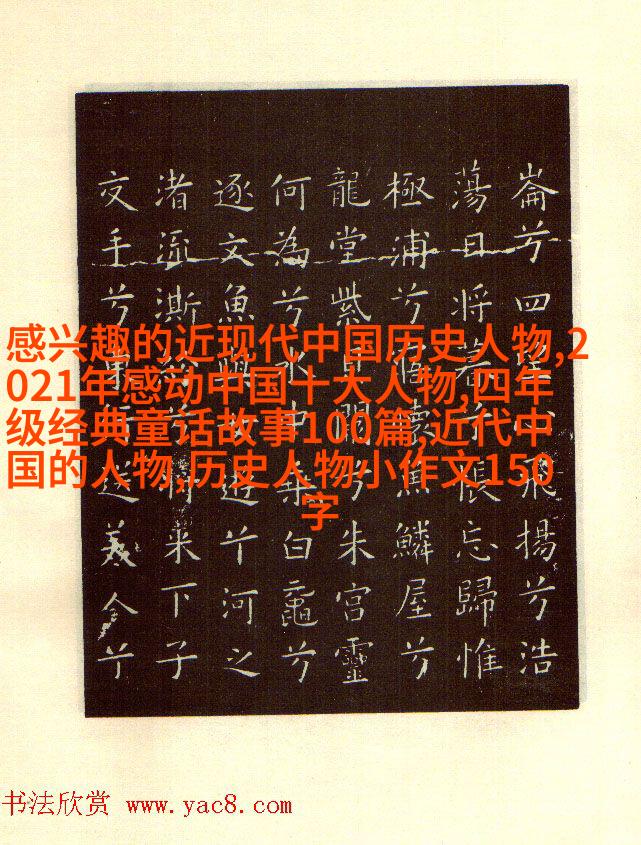 崙兮四望心飛揚兮浩
蕩日將暮兮悵忘歸惟
極浦兮寤懷魚鱗屋兮
龍堂紫貝闕兮朱宮靈
何為兮水中乗白鼋兮
逐文魚與遊兮河之
渚流澌紛兮將来下子
交手兮東行送美人兮
感兴趣的近现代中国历史人物,2
021年感动中国十大人物,四年
级经典童话故事100篇,近代中
国的人物,历史人物小作文150
字
书法欣赏 www.yac8.com